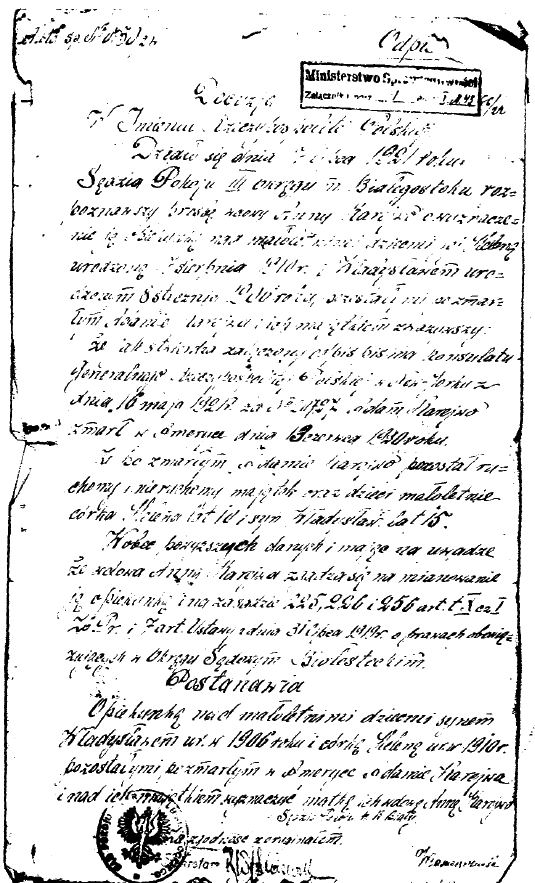 Odpis
Ministerstwo Sprawiedliwości
Załącznik
Decyzja
W Imieniu Rzeczypospolitej Polskiej
Działo się dnia 7 lipca 1921 roku.
Sędzia Pokoju III okręgu m. Białegostoku roz-
poznawszy prośbę wdowy Anny Karejwo o wyznacze-
nie ją opiekunką nad małoletniemi dziećmi jej Heleną
urodzoną 7 sierpnia 1910 r. i Władysławem uro-
dzonym 8 stycznia 1906 roku, pozostałymi po zmar-
łym Adamie Karejwo i ich majątkiem zważywszy:
Że jak stwierdza załączony odpis pisma Konsulatu
Generalnego Rzeczypospolitej Polskiej w New-Yorku z
dnia 16 maja 1921 r. za Nº Adam Karejwo
zmarł w Ameryce dnia 13 czerwca 1920 roku.
Że po zmarłym Adamie Karejwo pozostał ru-
chomy i nieruchomy majątek oraz dzieci małoletnie
córka Helena lat 10 i syn Władysław lat 15.
Wobec powyższych danych i mając na uwadze
że wdowa Anna Karejwo zgadza się na mianowanie
ją opiekunką i na zasadzie 225, 226 i 256 art. t. X cz. I
Zb. Pr. i 7 art. Ustawy z dnia 31 lipca 1919 r. o prawach obowią-
zujących w Okręgu Sądowym Białostockim.
Postanawia
Opiekunką nad małoletnimi dziećmi synem
Władysławem ur. w 1906 roku i córką Heleną ur. w 1910 r.
pozostałymi po zmarłym w Ameryce Adamie Karejwo
i nad ich majątkiem wyznaczyć matkę ich wdowę Annę Karejwo
Sędzia Pokoju
Za zgodność z oryginałem.
Sekretarz